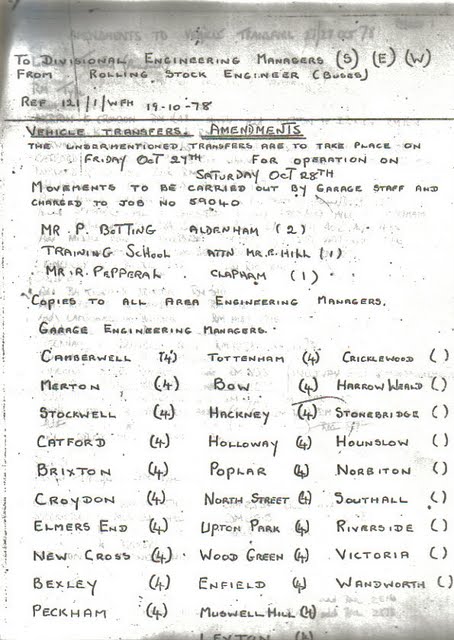 To Divisional Engineering Managers (S) (E) (W)
From Rolling Stock Engineer (Buses)
Ref 121/1/WFH 19-10-78
Vehicle Transfers. Amendments
The undermentioned transfers are to take place on
Friday Oct 27th for operation on
Saturday Oct 28th
Movements to be carried out by garage staff and
charged to Job No 59040
Mr P. Botting Aldenham (2)
Training School Attn Mr. E. Hill (1)
Mr. R. Pepperal Clapham (1)
Copies to all Area Engineering Managers.
Garage Engineering Managers.
Camberwell (4) Tottenham (4) Cricklewood ( )
Merton (4) Bow (4) Harrow Weald ( )
Stockwell (4) Hackney (4) Stonebridge ( )
Catford (4) Holloway (4) Hounslow ( )
Brixton (4) Poplar (4) Norbiton ( )
Croydon (4) North Street (4) Southall ( )
Elmers End (4) Upton Park (4) Riverside ( )
New Cross (4) Wood Green (4) Victoria ( )
Bexley (4) Enfield (4) Wandworth ( )
Peckham (4) Muswell Hill (4)
Leyton (4)